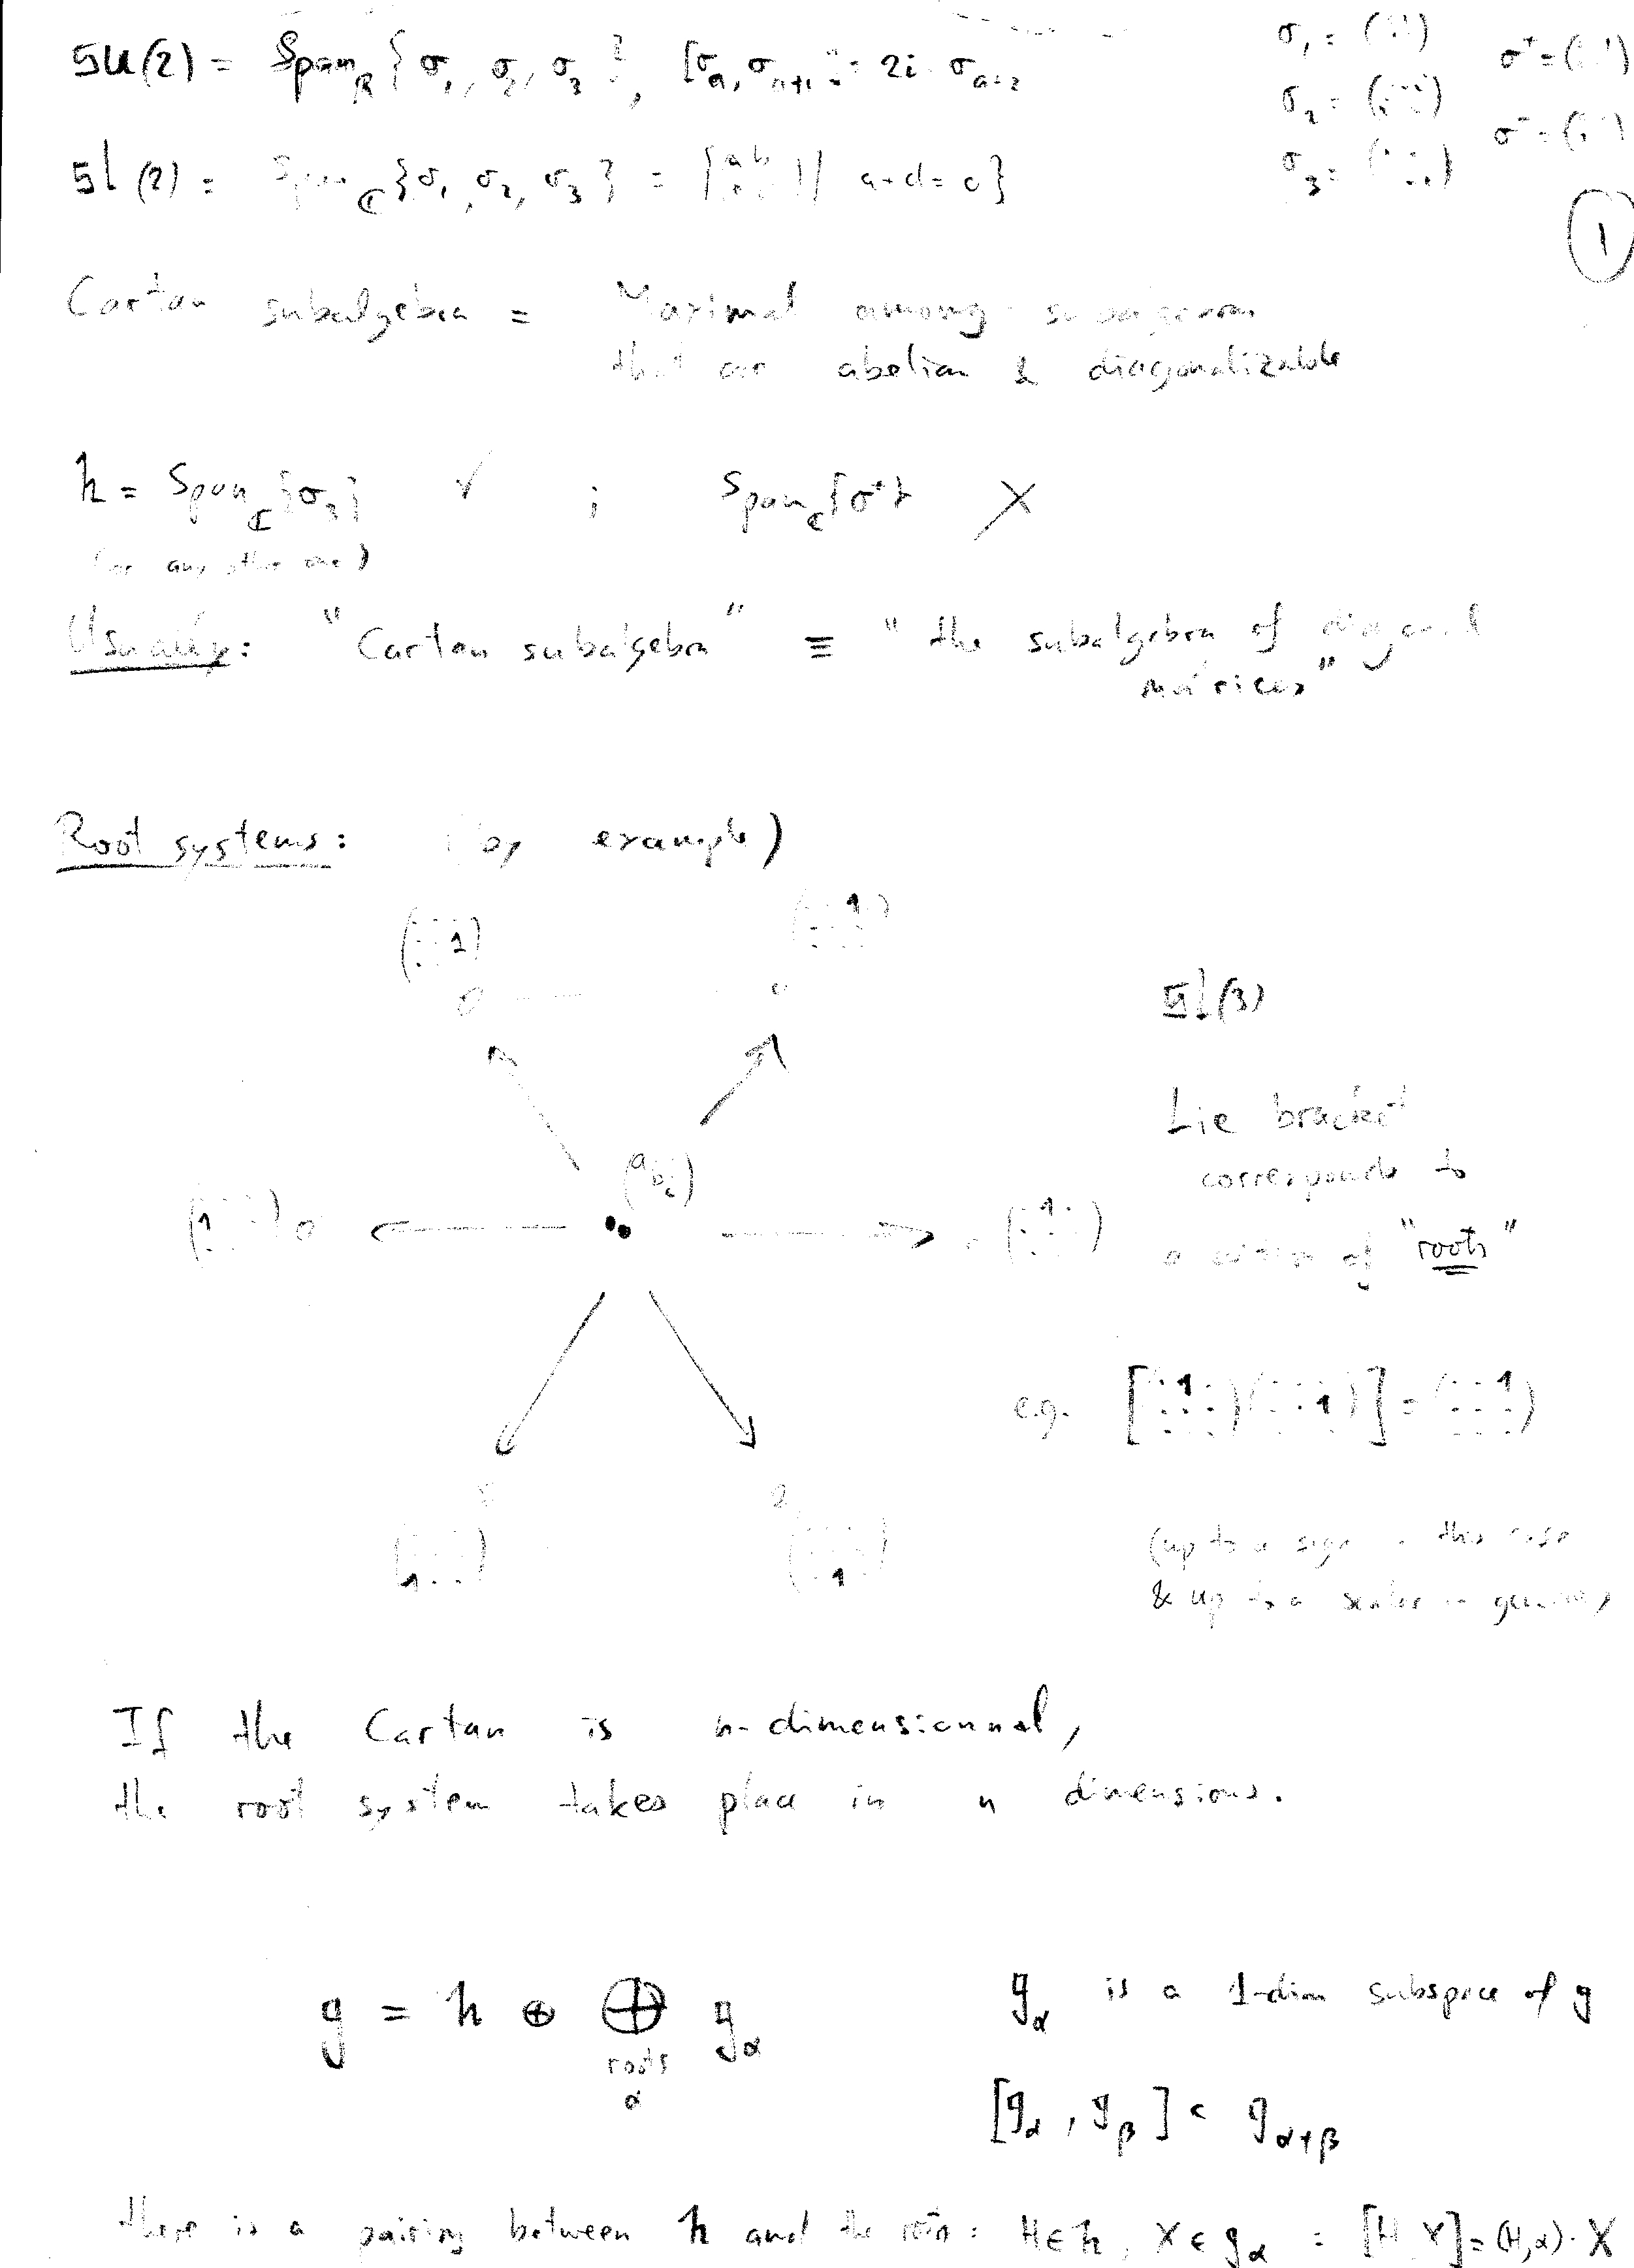 su(2) = Span_R {σ_1, σ_2, σ_3}, [σ_a, σ_{a+1}] = 2i σ_{a+2}
σ_1 = σ^+ =
σ_2 = σ^- =
σ_3 =
sl(2) = Span_C {σ_1, σ_2, σ_3} = { | a+d=0}
1
Cartan subalgebra = Maximal among subalgebras
that are abelian & diagonalizable
h = Span_C {σ_3} ✓ ; Span_C {σ^+} X
(or any other one)
Usually: "Cartan subalgebra" ≡ "the subalgebra of diagonal
matrices"
Root systems: (by example)
sl(3)
Lie bracket
corresponds to
addition of "roots"
e.g. [ ( 1 ) ( 1 ) ] = ( 1 )
(up to a sign in this case
& up to a scalar in general)
If the Cartan is n-dimensionnal,
the root system takes place in n dimensions.
g = h ⊕ ⊕ g_α g_α is a 1-dim subspace of g
roots
α
[g_α, g_β] ⊂ g_{α+β}
there is a pairing between h and the roots: H∈h, X∈g_α : [H,X]=(H,α)·X